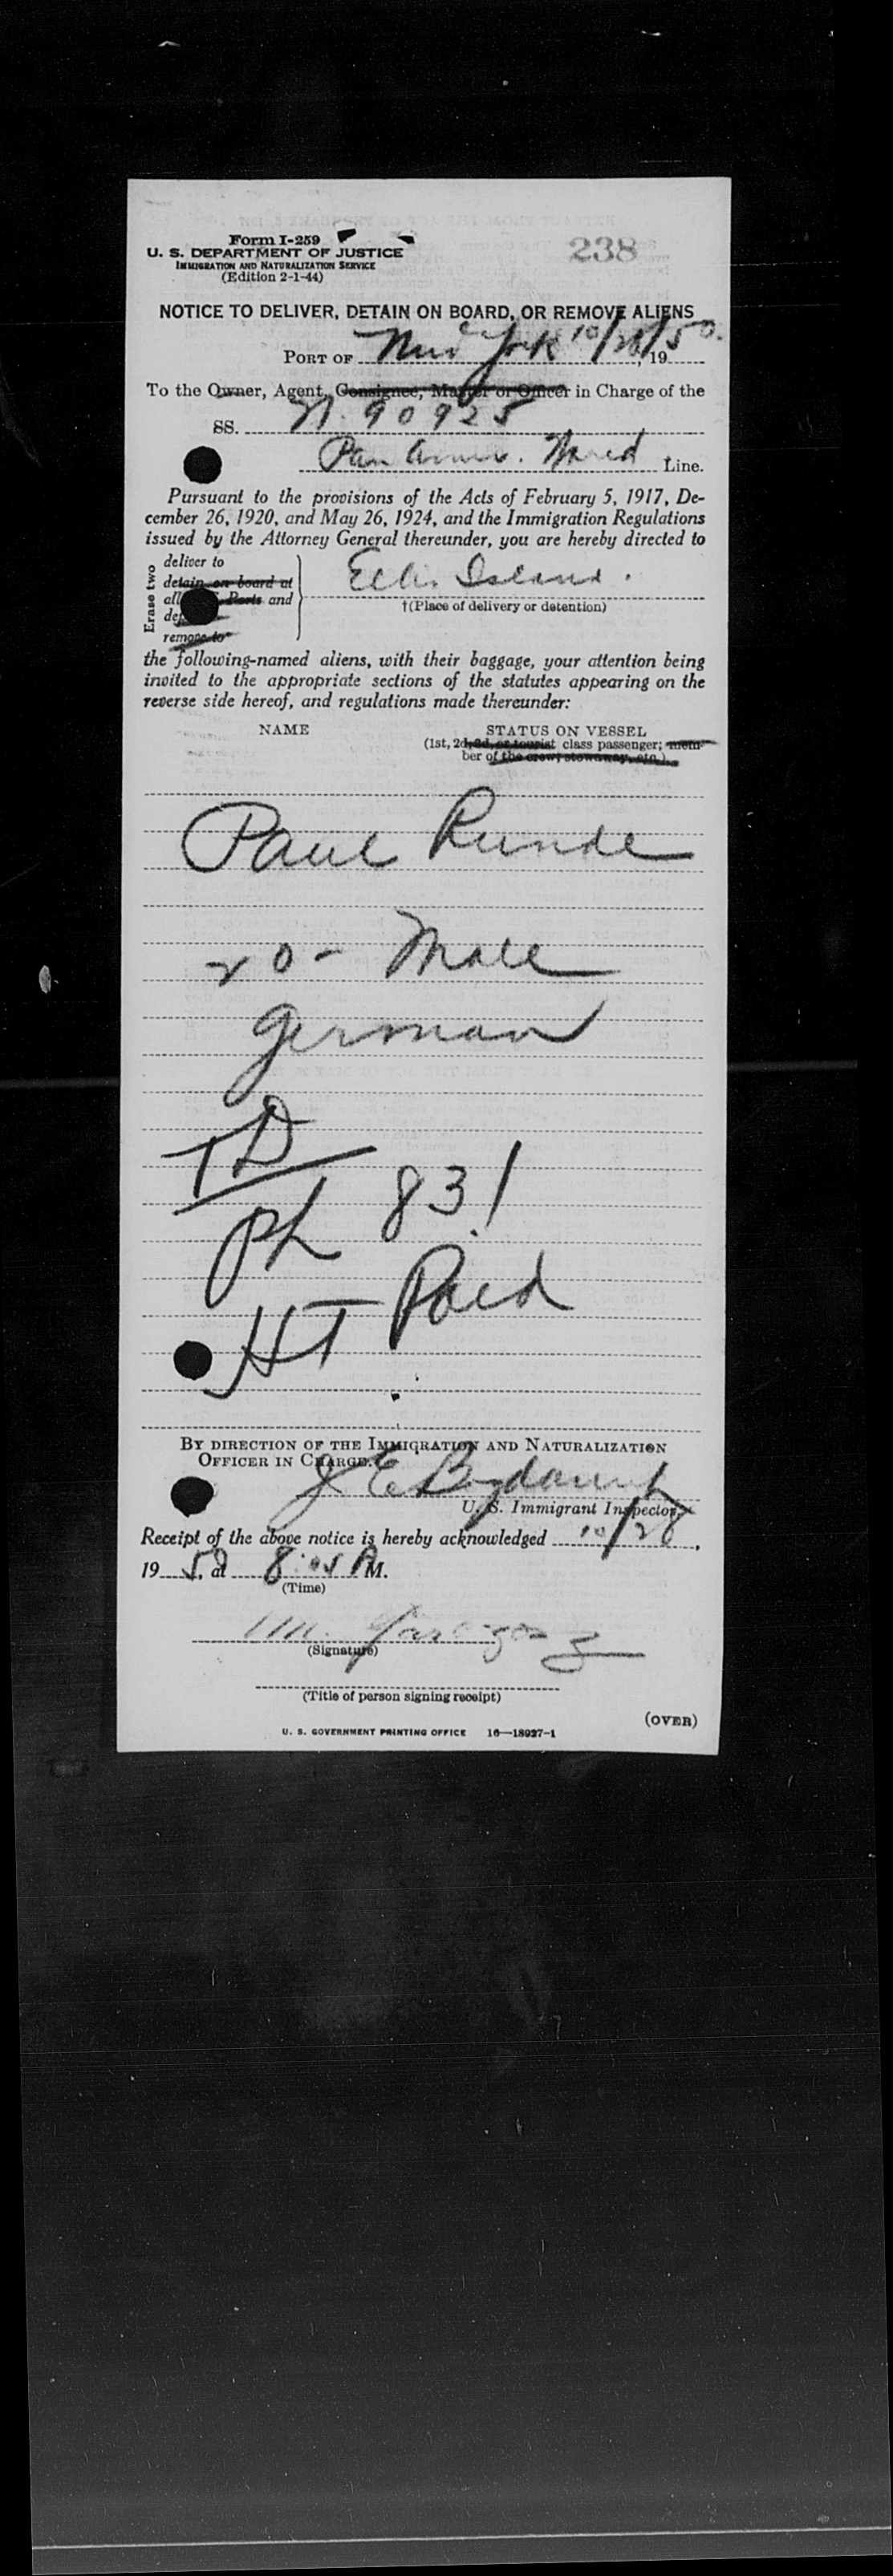 Form I-259
238
U. S. DEPARTMENT OF JUSTICE
IMMIGRATION AND NATURALIZATION SERVICE
(Edition 2-1-44)
NOTICE TO DELIVER, DETAIN ON BOARD, OR REMOVE ALIENS
PORT OF New York 10/28/50, 19
To the Owner, Agent, Consignee, Master or Officer in Charge of the
SS. N. 90925
Pan Amer. Line.
Pursuant to the provisions of the Acts of February 5, 1917, De-
cember 26, 1920, and May 26, 1924, and the Immigration Regulations
issued by the Attorney General thereunder, you are hereby directed to
Erase two
deliver to
detain on board at
all Ports and
remove to
Ellis Island.
†(Place of delivery or detention)
the following-named aliens, with their baggage, your attention being
invited to the appropriate sections of the statutes appearing on the
reverse side hereof, and regulations made thereunder:
NAME STATUS ON VESSEL
(1st, 2d, 3d, or tourist class passenger; mem-
ber of the crew; stowaway, etc.)
Paul Runde
20 - Male
German
TD
ph 83!
HT Paid
BY DIRECTION OF THE IMMIGRATION AND NATURALIZATION
OFFICER IN CHARGE.
J E
U. S. Immigrant Inspector.
Receipt of the above notice is hereby acknowledged 10/28,
1950, at 8:05 PM.
(Time)
(Signature)
(Title of person signing receipt)
(OVER)
U. S. GOVERNMENT PRINTING OFFICE 16—18927-1